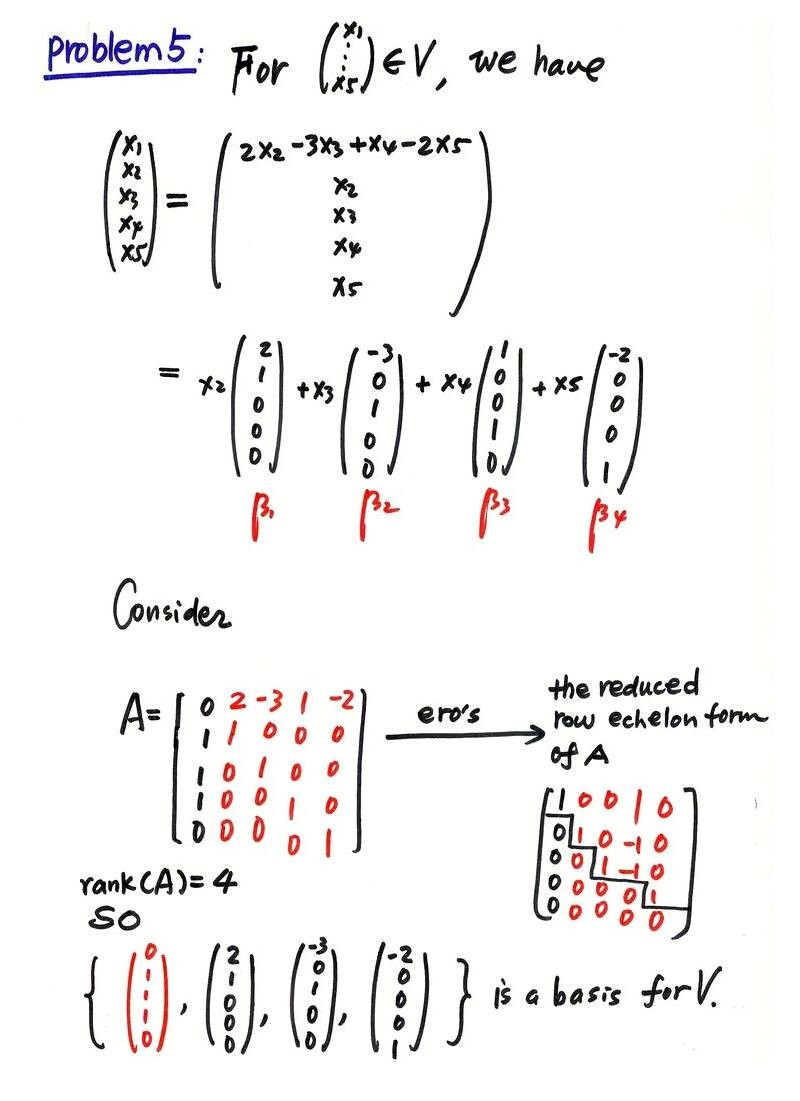 Problem 5: For (x1 ⋮ x5) ∈ V, we have
(x1 x2 x3 x4 x5) = (2x2 -3x3 +x4 -2x5
x2
x3
x4
x5)
= x2 (2 1 0 0 0) + x3 (-3 0 1 0 0) + x4 (1 0 0 1 0) + x5 (-2 0 0 0 1)
β1 β2 β3 β4
Consider
A = [0 2 -3 1 -2
1 1 0 0 0
1 0 1 0 0
1 0 0 1 0
0 0 0 0 1]
ero's
the reduced
row echelon form
of A
[1 0 0 1 0
0 1 0 -1 0
0 0 1 -1 0
0 0 0 0 1
0 0 0 0 0]
rank(A) = 4
SO
{ (0 1 1 1 0), (2 1 0 0 0), (-3 0 1 0 0), (-2 0 0 0 1) } is a basis for V.